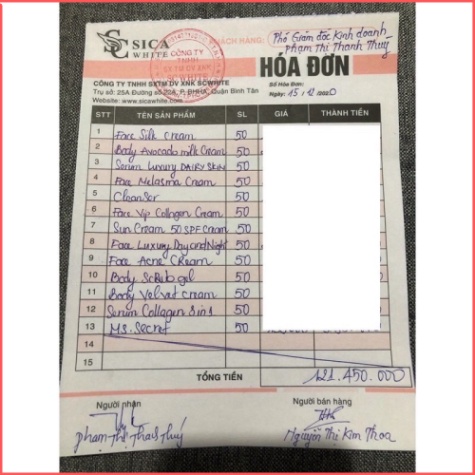 SICA WHITE
KHÁCH HÀNG:
Phó Giám đốc Kinh doanh
Phạm Thị Thanh Thuý
CÔNG TY TNHH SX TM DV XNK SCWHITE
HÓA ĐƠN
CÔNG TY TNHH SXTM DV XNK SCWHITE
Trụ sở: 25A Đường số 23A, P. BHHA, Quận Bình Tân
Website: www.sicawhite.com
Số Hóa Đơn:
Ngày: 15 / 12 /2020
STT TÊN SẢN PHẨM SL GIÁ THÀNH TIỀN
1 Face Silk Cream 50
2 Body Avocado milk Cream 50
3 Serum Luxury DAIRY SKIN 50
4 Face Melasma Cream 50
5 Cleanser 50
6 Face Vip Collagen Cream 50
7 Sun Cream 50 SPF Cream 50
8 Face Luxury Day and Night 50
9 Face Acne Cream 50
10 Body Scrub gel 50
11 Body Velvet Cream 50
12 Serum Collagen 3 in 1 50
13 Ms. Secret 50
14
15
TỔNG TIỀN 121.450.000
Người nhận Người bán hàng
Phạm Thị Thanh Thuý Nguyễn Thị Kim Thoa